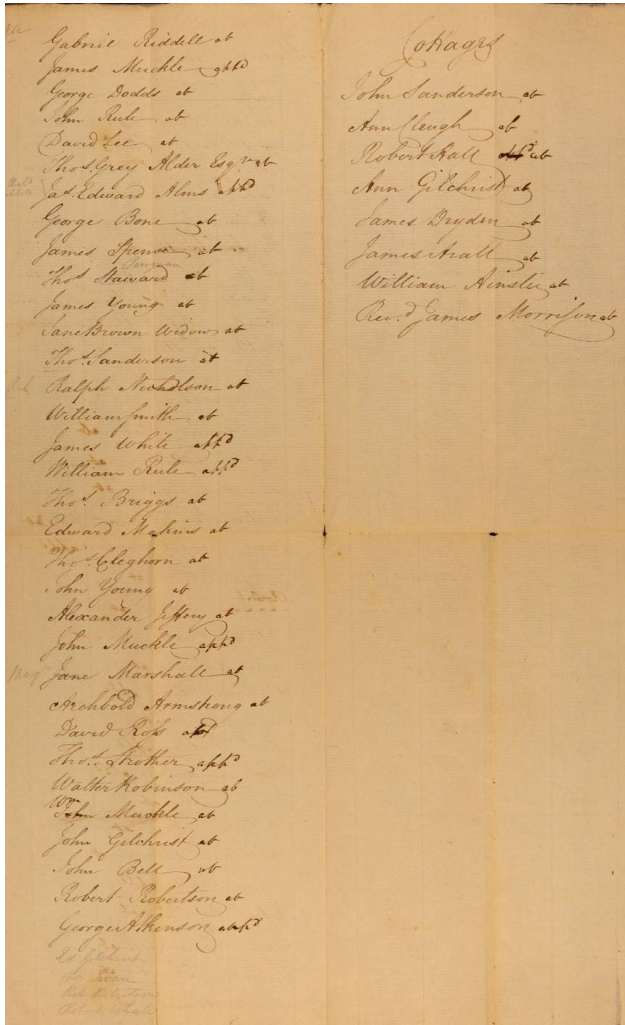 Gabriel Riddell ab
James Muckle appd
George Dodds ab
John Rule ab
David Lee ab
Thos. Grey Alder Esqr. ab
Jas. Edward Alms appd
George Bone ab
James Spence ab
Thos. Staward ab
James Young ab
Jane Brown Widow ab
Thos. Sanderson ab
Ralph Nicholson ab
William Smith ab
James White appd
William Rule appd
Thos. Briggs ab
Edward Makins ab
Thos. Cleghorn ab
John Young ab
Alexander Jeffery ab
John Muckle appd
Jane Marshall ab
Archbold Armstrong ab
David Ross
Thos. Strother appd
Walter Robinson ab
Wm Muckle ab
John Gilchrist ab
John Bell ab
Robert Robertson ab
George Atkinson appd
Gilchrist
Swan
Robertson
Cottages
John Sanderson ab
Ann Cleugh ab
Robert Hall ab
Ann Gilchrist ab
James Dryden ab
James Aralt ab
William Ainslie ab
Revd. James Morrison ab